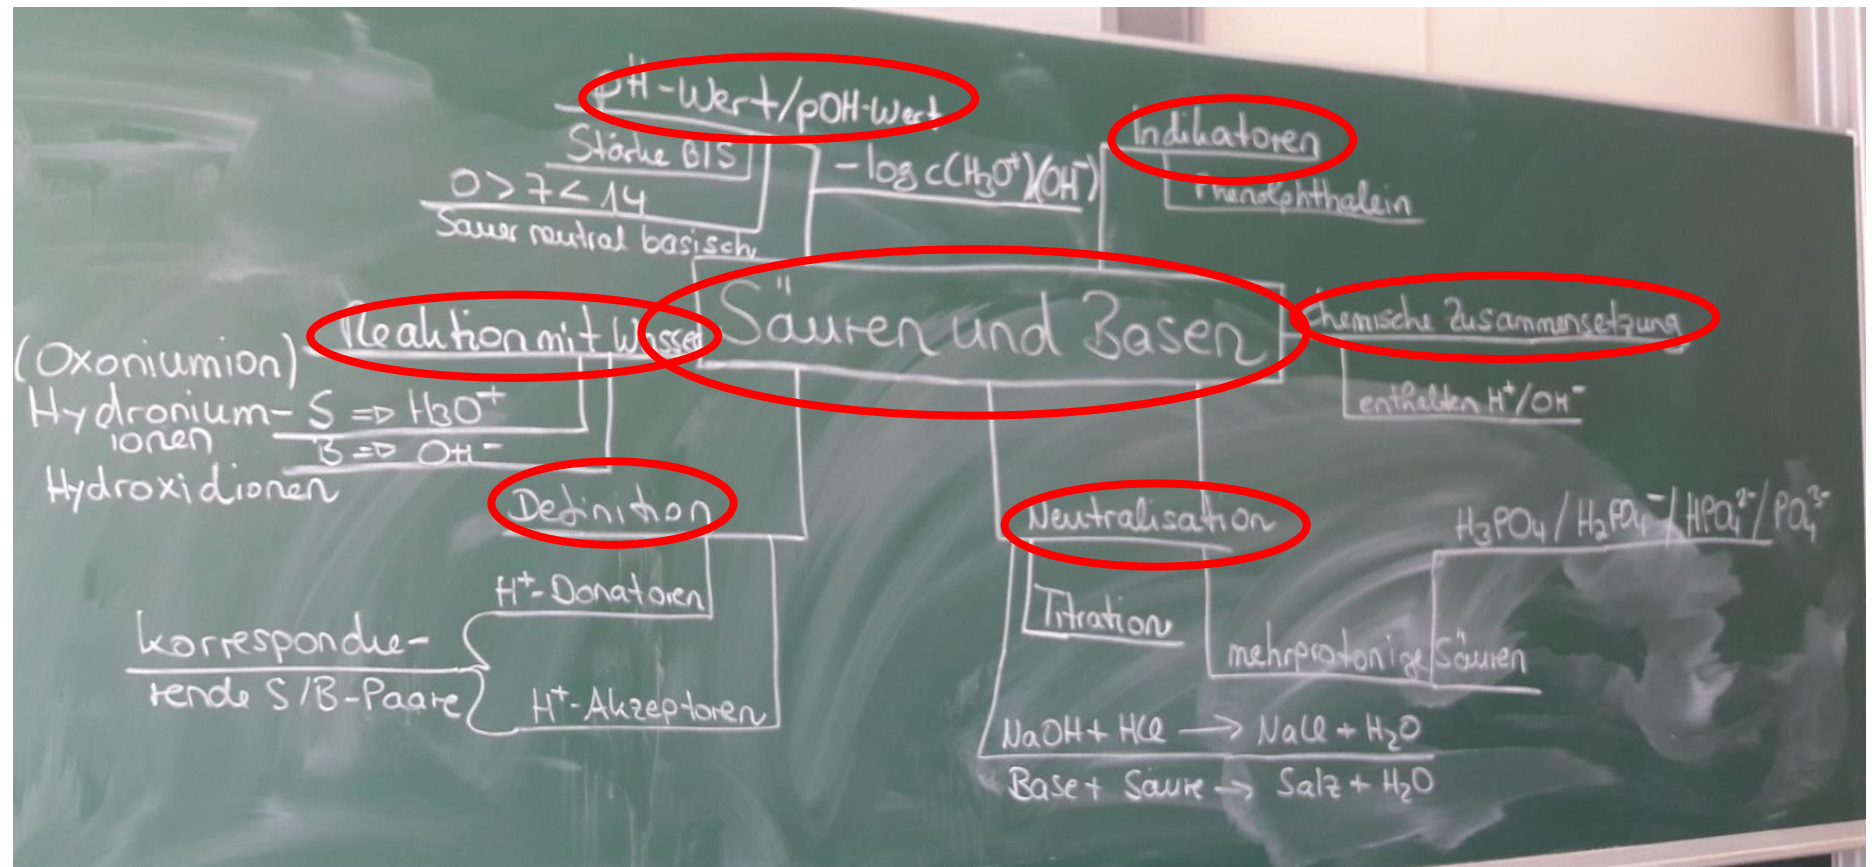 pH-Wert/pOH-Wert
Stärke B/S
0 > 7 < 14
Sauer neutral basisch
-log c(H₃O⁺)(OH⁻)
Indikatoren
Phenolphthalein
Säuren und Basen
Chemische Zusammensetzung
enthalten H⁺/OH⁻
Reaktion mit Wasser
(Oxoniumion)
Hydronium- S => H₃O⁺
ionen
B => OH⁻
Hydroxidionen
Definition
H⁺-Donatoren
korrespondie-
rende S/B-Paare
H⁺-Akzeptoren
Neutralisation
Titration
mehrprotonige Säuren
H₃PO₄ / H₂PO₄⁻ / HPO₄²⁻ / PO₄³⁻
NaOH + HCl → NaCl + H₂O
Base + Säure → Salz + H₂O